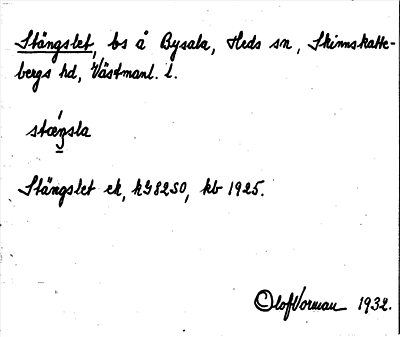 Stångslet, bs å Bysala, Heds sn, Skinnskatte-
bergs hd, Västmanl. l.
stæŋsla
Stängslet ek, kG82SO, kb 1925.
Olof Vorman 1932.